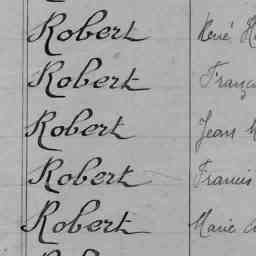 Robert René
Robert Franç
Robert Jean
Robert Francis
Robert Marie